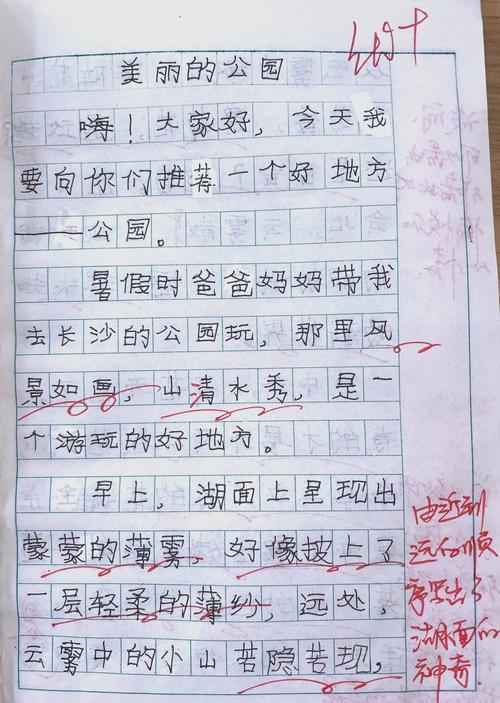 美丽的公园
嗨！大家好，今天我
要向你们推荐一个好地方
——公园。
暑假时爸爸妈妈带我
去长沙的公园玩，那里风
景如画，山清水秀，是一
个游玩的好地方。
早上，湖面上呈现出
蒙蒙的薄雾，好像披上了
一层轻柔的薄纱，远处，
云雾中的小山苦隐苦现，
由近到
远的顺
序写出了
湖面的
神奇